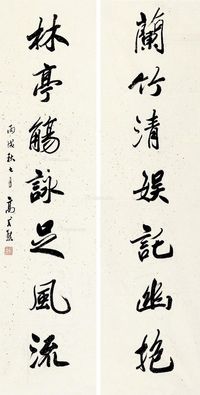 蘭竹清娱託幽抱
林亭觴詠足風流
丙戌秋七月